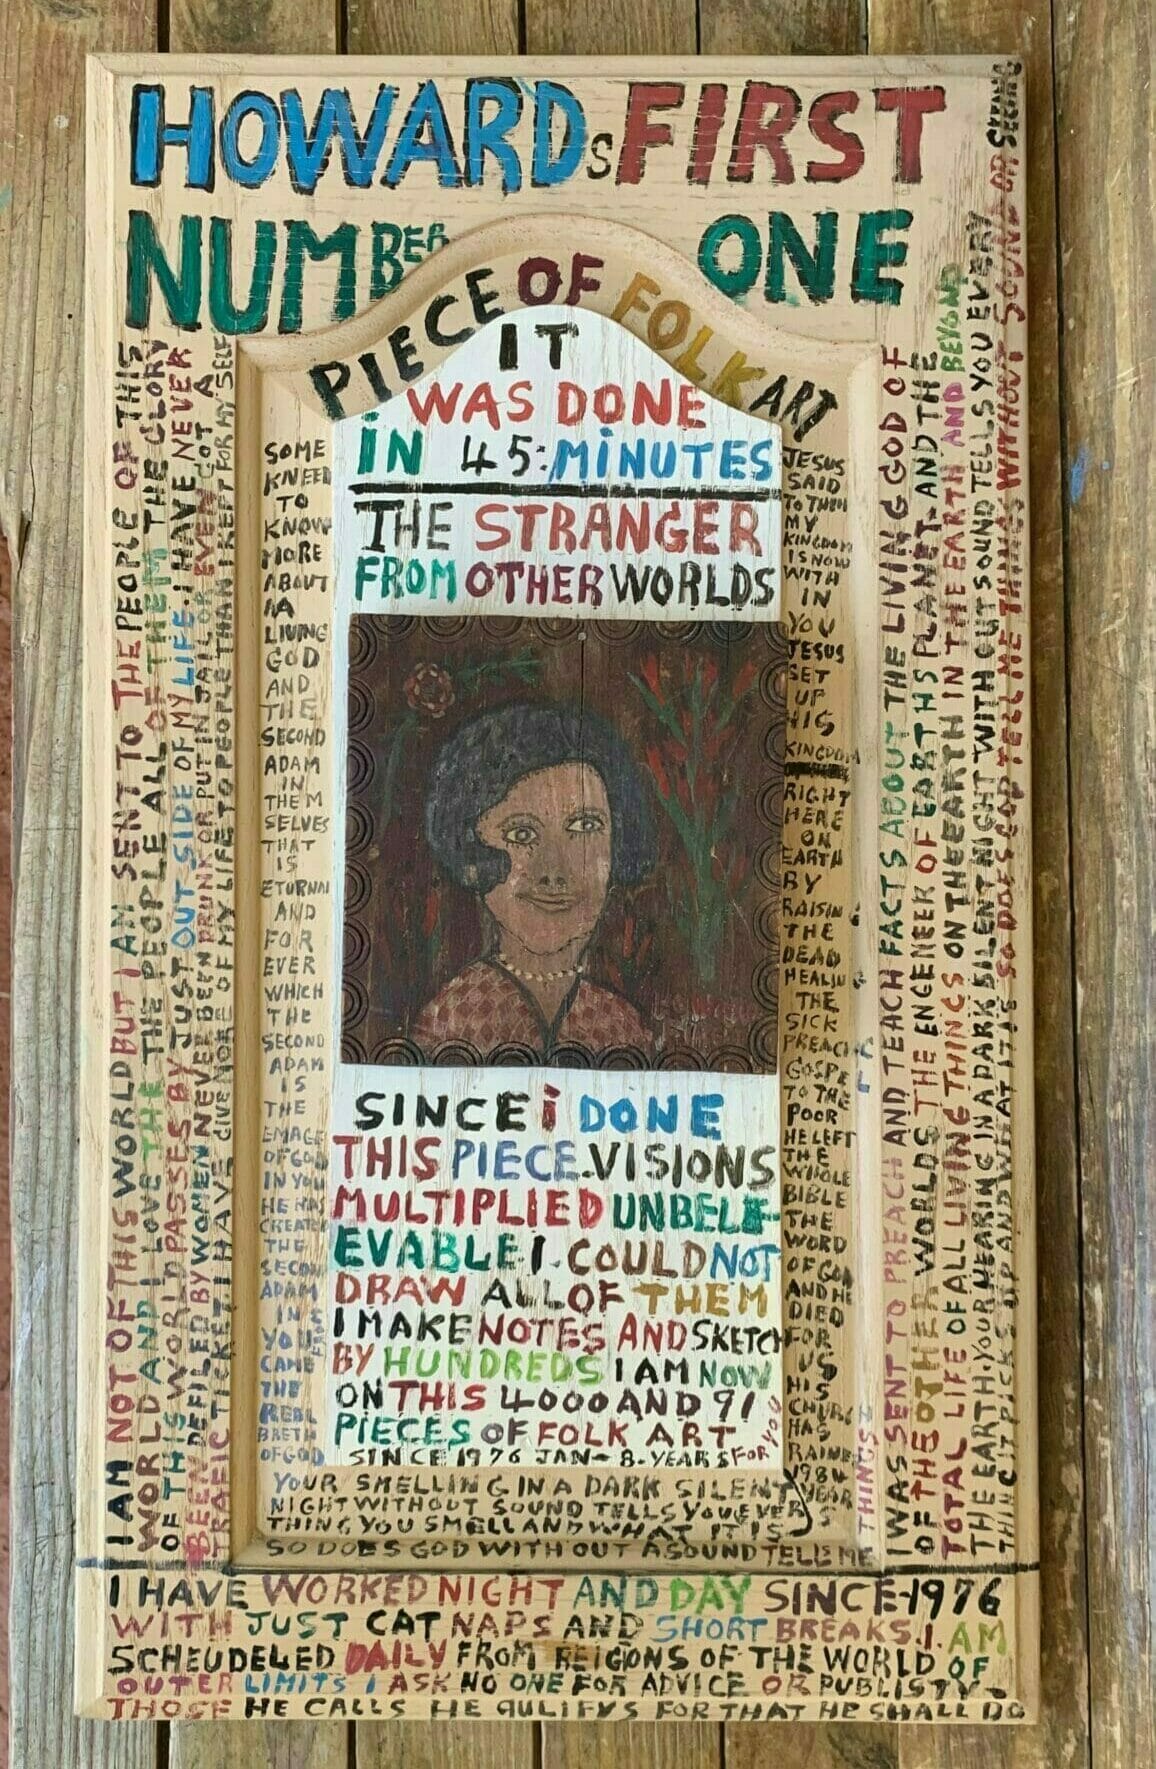 HOWARDs FIRST
NUMBER ONE
PIECE OF FOLK ART
IT
WAS DONE
iN 45:MiNUTES
THE STRANGER
FROM OTHER WORLDS
SINCE i DONE
THIS PIECE.VISIONS
MULTIPLIED UNBELE-
EVABLE I. COULD NOT
DRAW ALL OF THEM
I MAKE NOTES AND SKETCH
BY HUNDREDS I AM NOW
ON THIS 4000 AND 91
PIECES OF FOLK ART
SINCE 1976 JAN-8-YEARS FOR YOU
SOME
KNEED
TO
KNOW
MORE
ABOUT
A
LIVING
GOD
AND
THE
SECOND
ADAM
IN
THEM
SELVES
THAT
IS
ETURNAL
AND
FOR
EVER
WHICH
THE
SECOND
ADAM
IS
THE
EMAGE
OF GOD
IN YOU
HE HAS
CREATED
THE
SECOND
ADAM
IN
YOU
CAME FROM
THE
REAL
BRETH
OF GOD
JESUS
SAID
TO THEM
MY
KINGDOM
IS NOW
WITH
IN
YOU
JESUS
SET
UP
HIS
KINGDOM
RIGHT
HERE
ON
EARTH
BY
RAISING
THE
DEAD
HEALING
THE
SICK
PREACH
GOSPEL
TO THE
POOR
HE LEFT
THE
WHOLE
BIBLE
THE
WORD
OF GOD
AND HE
DIED
FOR
US
HIS
CHURCH
HAS
RAINED
1984
YEARS
YOUR SMELLING IN A DARK SILENT
NIGHT WITHOUT SOUND TELLS YOU EVERY
THING YOU SMELL AND WHAT IT IS
SO DOES GOD WITHOUT A SOUND TELLS ME
THINGS I
I AM NOT OF THIS WORLD BUT I AM SENT TO THE PEOPLE OF THIS
WORLD AND I LOVE THE THE PEOPLE ALL OF THEM THE GLORY
OF THIS WORLD PASSES BY JUST OUT SIDE OF MY LIFE. I HAVE NEVER
BEEN DEFILED BY WOMEN NEVER BEEN DRUNK OR PUT IN JAIL OR EVEN GOT A
TRAFIC TICKET. I HAVE GIVE MORE OF MY LIFE TO PEOPLE THAN I KEPT FOR MY SELF
I WAS SENT TO PREACH AND TEACH FACTS ABOUT THE LIVING GOD OF
OF THE OTHER WORLDS THE ENGENEER OF EARTHS PLANET. AND THE
TOTAL LIFE OF ALL LIVING THINGS ON THE EARTH IN THE EARTH AND BEYOND
THE EARTH. YOUR HEARING IN A DARK SILENT NIGHT WITH OUT SOUND TELLS YOU EVERY
THING IT PICKS UP AND WHAT IT IS SO DOES GOD TELL ME THINGS WITHOUT SOUND OR SEEING
I HAVE WORKED NIGHT AND DAY SINCE-1976
WITH JUST CAT NAPS AND SHORT BREAKS. I. AM
SCHEUDELED DAILY FROM REIGONS OF THE WORLD OF
OUTER LIMITS I ASK NO ONE FOR ADVICE OR PUBLISTY-
THOSE HE CALLS HE QULIFYS FOR THAT HE SHALL DO